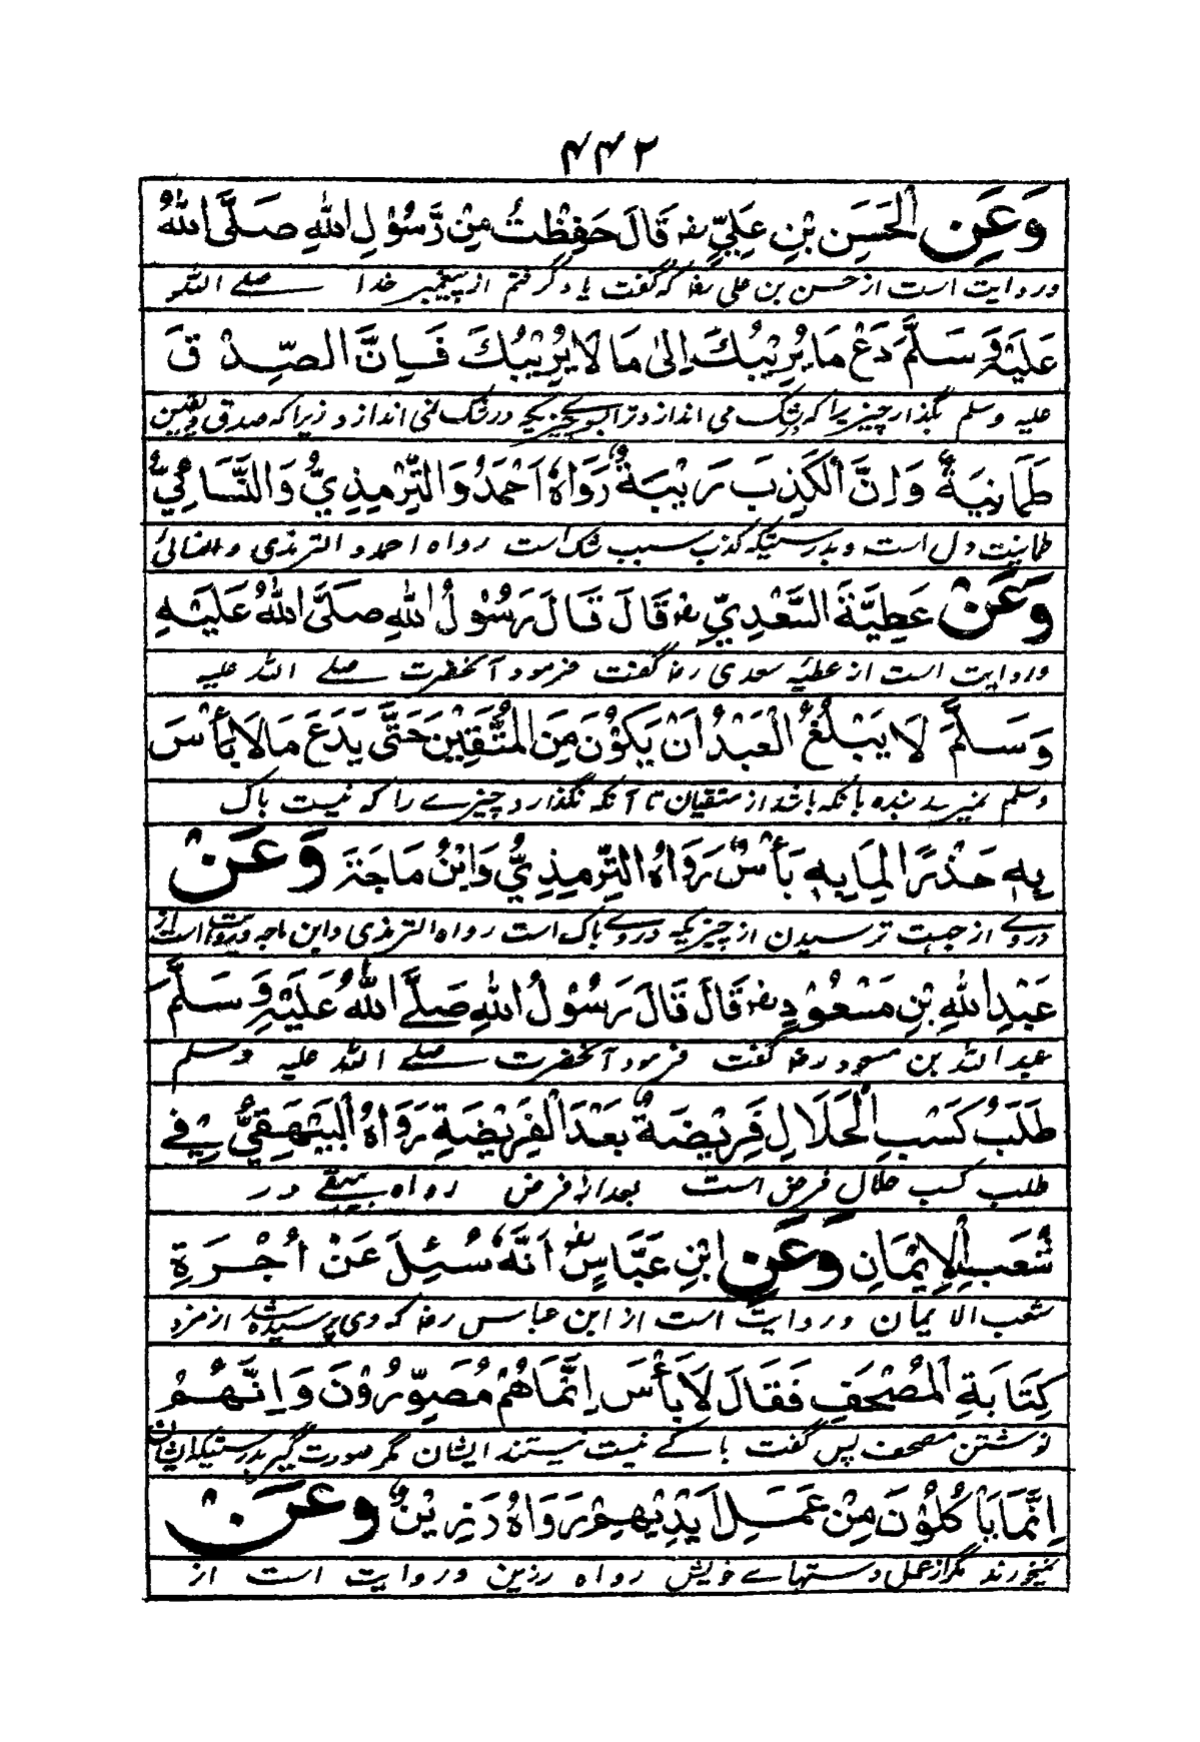 ۴۴۲
وَعَنِ الْحَسَنِ بْنِ عَلِيٍّ رض قَالَ حَفِظْتُ مِنْ رَّسُوْلِ اللهِ صَلَّى اللهُ
وروایت است از حسن بن علی رضا که گفت یاد گرفتم از پیغمبر خدا صلے اللہ
عَلَيْهِ وَسَلَّمَ دَعْ مَا يُرِيْبُكَ اِلىٰ مَا لَا يُرِيْبُكَ فَاِنَّ الصِّدْقَ
علیه وسلم بگذار چیزیرا که بشک می اندازد ترا بسوی چیزیکه در شک نمی اندازد زیرا که صدق ویقین
طَمَانِيَةٌ وَاِنَّ الْكَذِبَ رَيْبَةٌ رَوَاهُ اَحْمَدُ وَالتِّرْمِذِيُّ وَالنَّسَائِيُّ
طمانیت دل است وبدرستیکه کذب سبب شک است رواه احمد والترمذی والنسائی
وَعَنْ عَطِيَّةَ السَّعْدِيِّ رض قَالَ قَالَ رَسُوْلُ اللهِ صَلَّى اللهُ عَلَيْهِ
وروایت است از عطیه سعدی رضا گفت فرمود آنحضرت صلے اللہ علیه
وَسَلَّمَ لَا يَبْلُغُ الْعَبْدُ اَنْ يَكُوْنَ مِنَ الْمُتَّقِيْنَ حَتّٰى يَدَعَ مَا لَا بَأْسَ
وسلم نمیرسد بنده بانکه باشد از متقیان تا آنکه نگذارد چیزے را که نیست باک
بِهٖ حَذَرًا لِمَا بِهٖ بَأْسٌ رَوَاهُ التِّرْمِذِيُّ وَابْنُ مَاجَةَ وَعَنْ
دروے از جهت ترسیدن از چیزیکه دروے باک است رواه الترمذی وابن ماجه وروایت است از
عَبْدِ اللهِ بْنِ مَسْعُوْدٍ رض قَالَ قَالَ رَسُوْلُ اللهِ صَلَّے اللهُ عَلَيْهِ وَسَلَّمَ
عبد اللہ بن مسعود رضا گفت فرمود آنحضرت صلے اللہ علیه وسلم
طَلَبُ كَسْبِ الْحَلَالِ فَرِيْضَةٌ بَعْدَ الْفَرِيْضَةِ رَوَاهُ الْبَيْهَقِيُّ فِے
طلب کسب حلال فرض است بعد از فرض رواه بیهقے در
شُعَبِ الْاِيْمَانِ وَعَنِ ابْنِ عَبَّاسٍ رض اَنَّهٗ سُئِلَ عَنْ اُجْرَةِ
شعب الایمان وروایت است از ابن عباس رضا که وی پرسیده شد از مزد
كِتَابَةِ الْمُصْحَفِ فَقَالَ لَا بَأْسَ اِنَّمَا هُمْ مُصَوِّرُوْنَ وَاِنَّهُمْ
نوشتن مصحف پس گفت باکے نیست نیستند ایشان مگر صورت گیر بدرستیکه ایشان
اِنَّمَا يَاْكُلُوْنَ مِنْ عَمَلِ اَيْدِيْهِمْ رَوَاهُ رَزِيْنٌ وَعَنْ
نمیخورند مگر از عمل دستهاے خویش رواه رزین وروایت است از